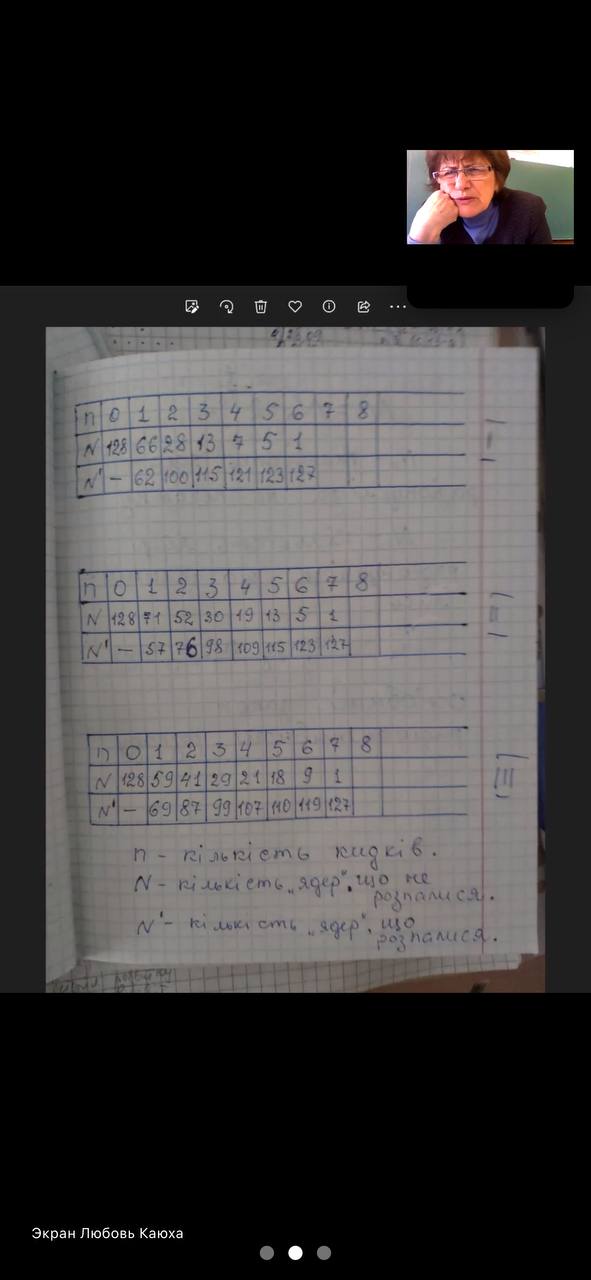 n 0 1 2 3 4 5 6 7 8
N 128 66 28 13 7 5 1
N' - 62 100 115 121 123 127
I
n 0 1 2 3 4 5 6 7 8
N 128 71 52 30 19 13 5 1
N' - 57 76 98 109 115 123 127
II
n 0 1 2 3 4 5 6 7 8
N 128 59 41 29 21 18 9 1
N' - 69 87 99 107 110 119 127
III
n - кількість кидків.
N - кількість „ядер", що не
розпалися.
N' - кількість „ядер", що
розпалися.
Экран Любовь Каюха